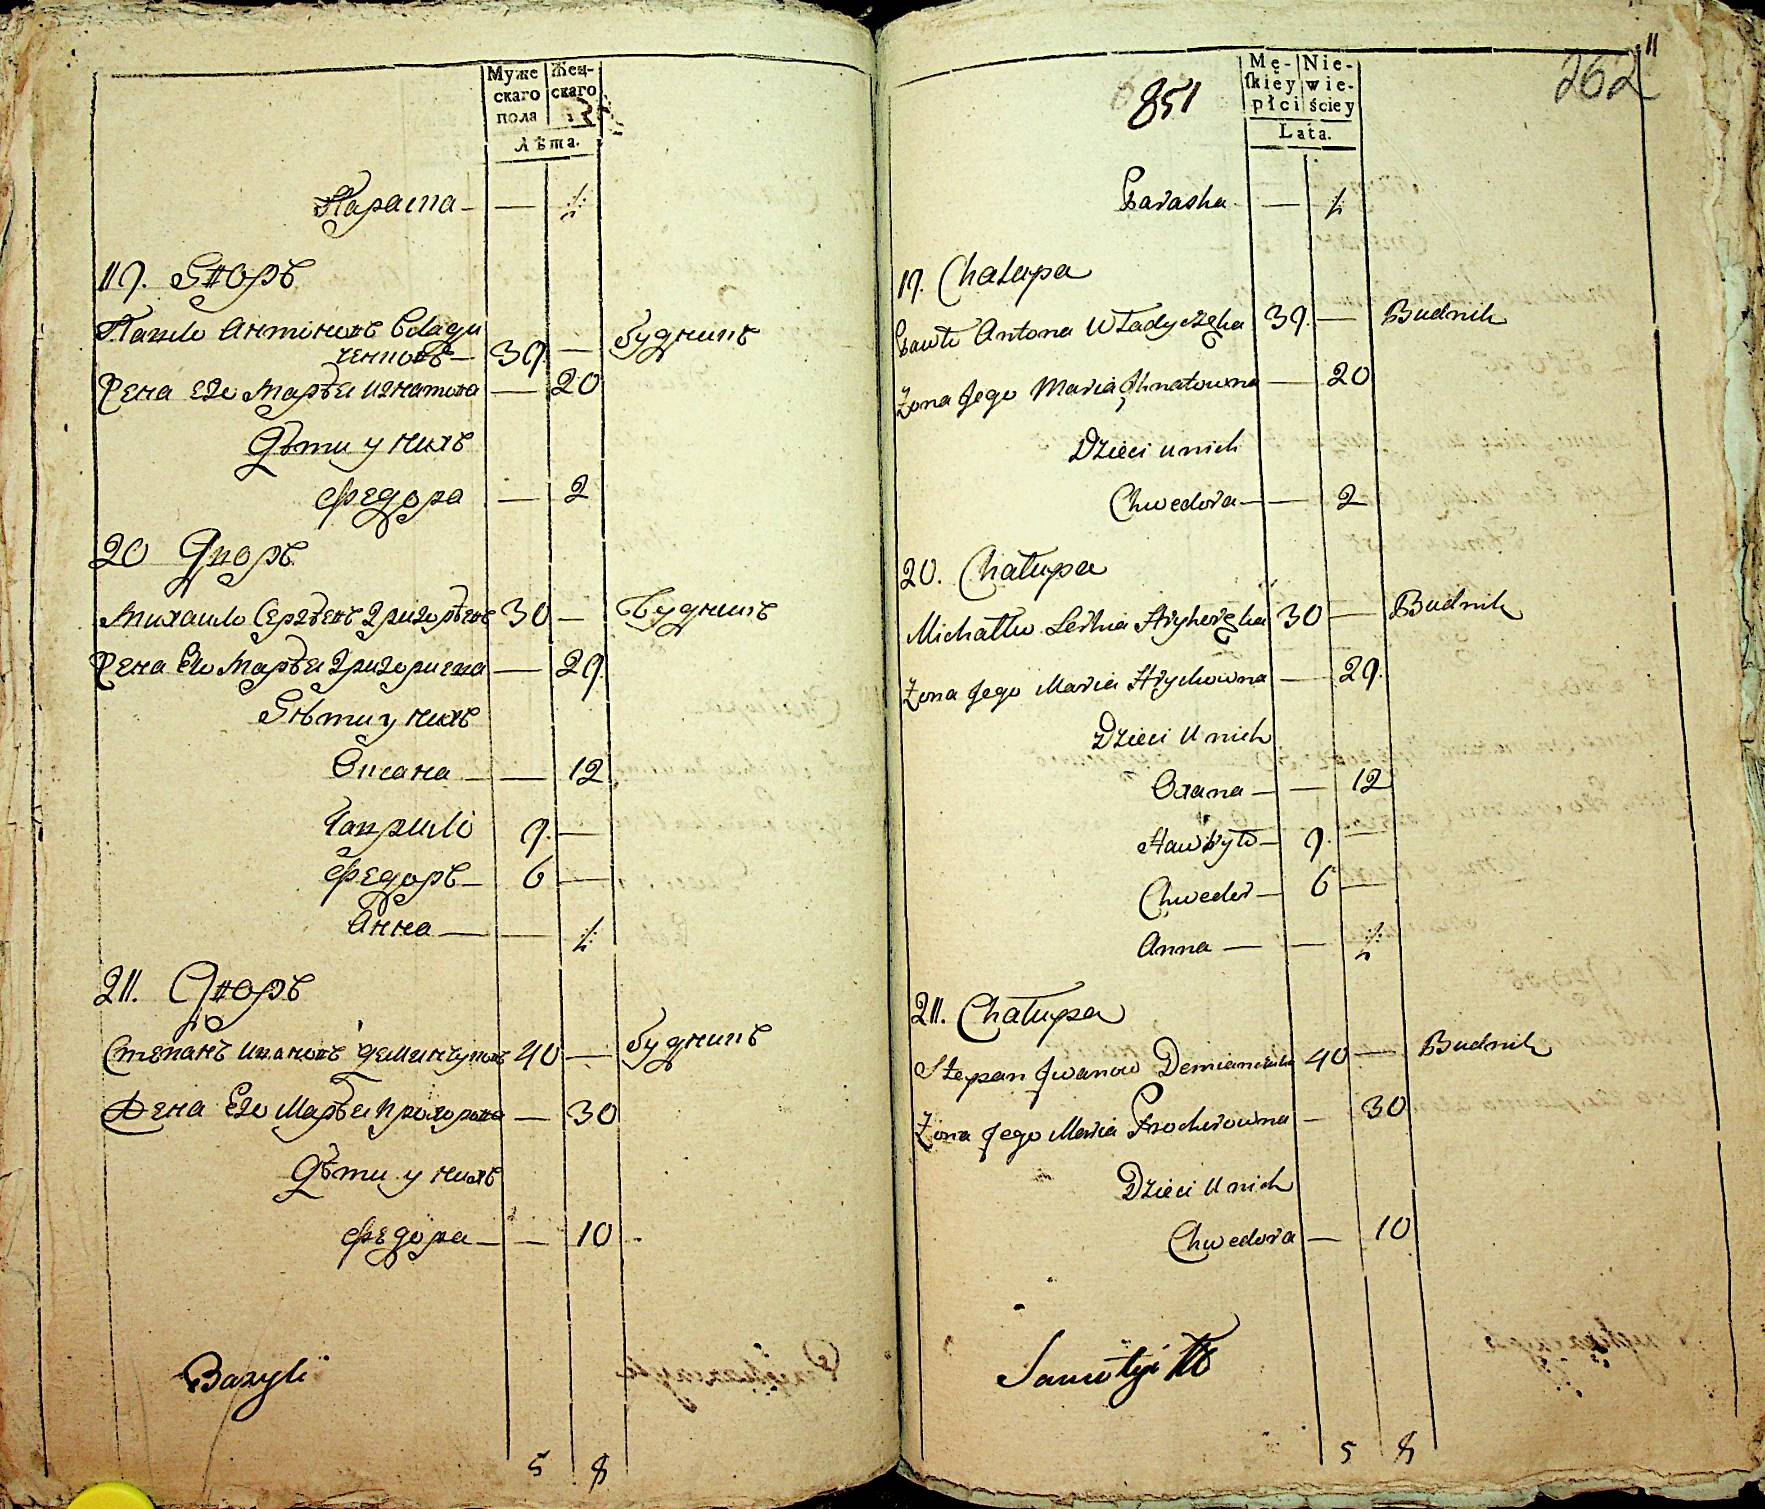 Муже
скаго
пола
Жен-
скаго
Лѣта.
Параска — — ½
19. Дворъ
Павло Антоновъ Влади
ченковъ — 39. — будникъ
Жена Его Марѣя Игнатова — 20
Дѣти у нихъ
Федора — 2
20 Дворъ
Михаило Сергѣевъ Григорѣевъ 30 — Будникъ
Жена Его Марѣя Григориева — 29.
Дѣти у нихъ
Оксана — — 12
Гаврило 9. —
Федоръ — 6 —
Анна — — ½
21. Дворъ
Степанъ Ивановъ Деминчуковъ 40 — будникъ
Жена Его Марѣя Прохорова — 30
Дѣти у нихъ
Федора — — 10
Bazyli
5 8
11
262
851
Mę-
skiey
płci
Nie-
wie-
ściey
Lata.
Paraska — — ½
19. Chałupa
Pawło Antona Władyczęka 39. — Budnik
Żona Jego Maria Ihnatowna — 20
Dzieci u nich
Chwedora — — 2
20. Chałupa
Michałło Serhia Hryheręka 30 — Budnik
Żona Jego Maria Hrychowna — 29.
Dzieci U nich
Oxana — — 12
Hawryło — 9. —
Chweder — 6 —
Anna — — ½
21. Chałupa
Stepan Iwanow Demianczuka 40 — Budnik
Żona Jego Maria Prochorowna — 30
Dzieci U nich
Chwedora — 10
5 8